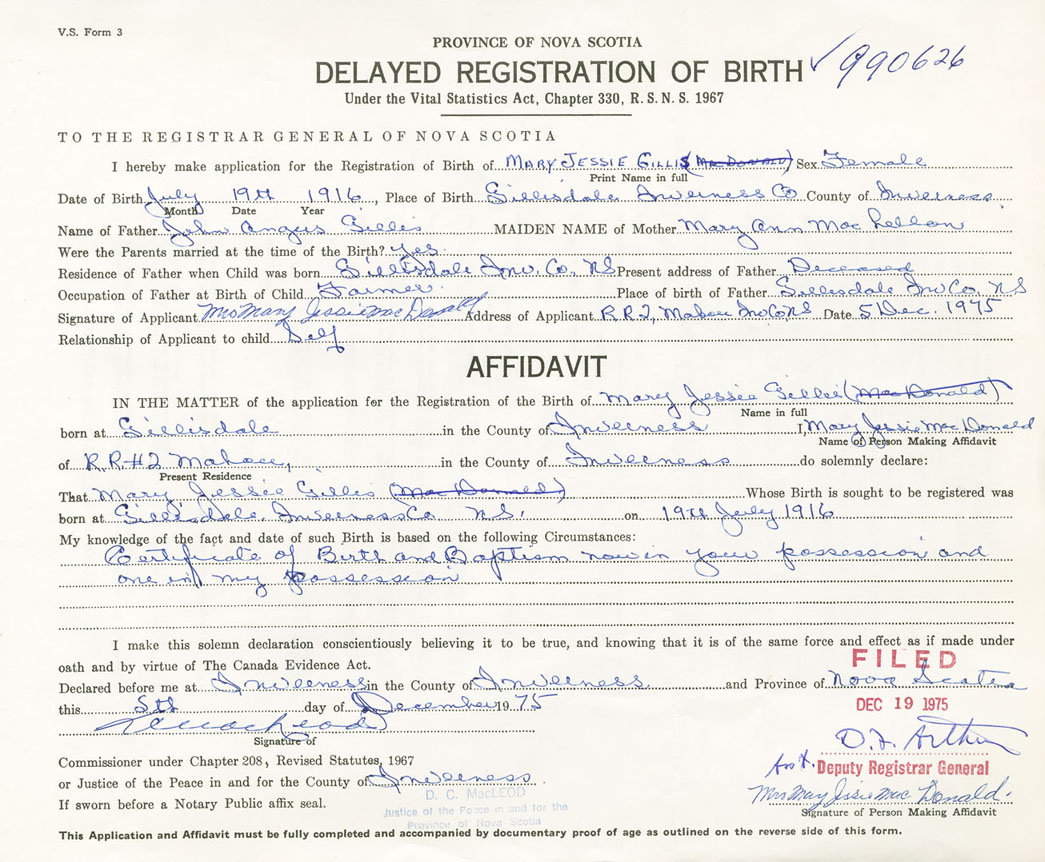 V.S. Form 3
PROVINCE OF NOVA SCOTIA
DELAYED REGISTRATION OF BIRTH ✓ 990626
Under the Vital Statistics Act, Chapter 330, R. S. N. S. 1967
TO THE REGISTRAR GENERAL OF NOVA SCOTIA
I hereby make application for the Registration of Birth of MARY JESSIE GILLIS (MACDONALD) Sex Female
Print Name in full
Date of Birth July 19th 1916, Place of Birth Gillisdale Inverness Co County of Inverness
Month Date Year
Name of Father John Angus Gillis MAIDEN NAME of Mother Mary Ann MacLellan
Were the Parents married at the time of the Birth? Yes
Residence of Father when Child was born Gillisdale Inv. Co. NS Present address of Father Deceased
Occupation of Father at Birth of Child Farmer Place of birth of Father Gillisdale Inv Co. NS
Signature of Applicant Mrs Mary Jessie MacDonald Address of Applicant R.R.2, Mabou Inv Co NS Date 5 Dec. 1975
Relationship of Applicant to child Self
AFFIDAVIT
IN THE MATTER of the application for the Registration of the Birth of Mary Jessie Gillis (MacDonald)
Name in full
born at Gillisdale in the County of Inverness I, Mary Jessie MacDonald
Name of Person Making Affidavit
of R.R.#2 Mabou, in the County of Inverness do solemnly declare:
Present Residence
That Mary Jessie Gillis (MacDonald) Whose Birth is sought to be registered was
born at Gillisdale, Inverness Co. N.S. on 19th July 1916
My knowledge of the fact and date of such Birth is based on the following Circumstances:
Certificate of Birth and Baptism now in your possession and
one in my possession
I make this solemn declaration conscientiously believing it to be true, and knowing that it is of the same force and effect as if made under
oath and by virtue of The Canada Evidence Act.
FILED
Declared before me at Inverness in the County of Inverness and Province of Nova Scotia
this 5th day of December 1975
DEC 19 1975
Signature of
Commissioner under Chapter 208, Revised Statutes, 1967
Deputy Registrar General
or Justice of the Peace in and for the County of Inverness
D. C. MacLEOD
Mrs Mary Jessie MacDonald.
If sworn before a Notary Public affix seal.
Justice of the Peace in and for the
Signature of Person Making Affidavit
Province of Nova Scotia
This Application and Affidavit must be fully completed and accompanied by documentary proof of age as outlined on the reverse side of this form.